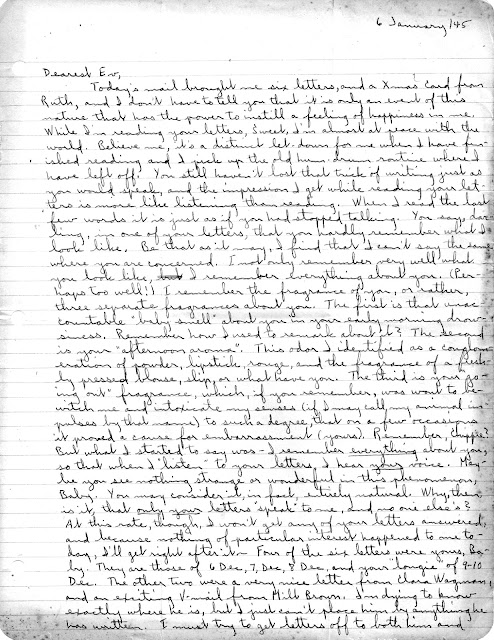 6 January/45
Dearest Ev,
Today's mail brought me six letters, and a Xmas Card from
Ruth, and I don't have to tell you that it is only an event of this
nature that has the power to instill a feeling of happiness in me.
While I'm reading your letters, Sweet, I'm almost at peace with the
world. Believe me, it's a distinct let-down for me when I have fin-
ished reading and I pick up the old hum-drum routine where I
have left off. You still haven't lost that trick of writing just as
you would speak, and the impression I get while reading your let-
ters is more like listening than reading. When I read the last
few words it is just as if you had stopped talking. You say, dar-
ling, in one of your letters, that you hardly remember what I
look like. Be that as it may, I find that I can't say the same
where you are concerned. I not only remember very well what
you look like, I remember everything about you. (Per-
haps too well!) I remember the fragrance of you, or rather,
three separate fragrances about you. The first is that unac-
countable "baby smell" about you in your early morning drow-
siness. Remember how I used to remark about it? The second
is your "afternoon aroma". This odor I identified as a conglom-
eration of powder, lipstick, rouge, and the fragrance of a fresh-
ly pressed blouse, slip, or what have you. The third is your "go-
ing out" fragrance, which, if you remember, was wont to be-
witch me and intoxicate my senses (if I may call my animal im-
pulses by that name) to such a degree, that on a few occasions
it proved a cause for embarrassment (yours). Remember, Chippie?
But what I started to say was - I remember everything about you,
so that when I "listen" to your letters, I hear your voice. May-
be you see nothing strange or wonderful in this phenomenon,
Baby. You may consider it, in fact, entirely natural. Why, then
is it, that only your letters "speak" to me, and no one else's?
At this rate, though, I won't get any of your letters answered,
and because nothing of particular interest happened to me to-
day, I'll get right after it - Four of the six letters were yours, Ba-
by. They are those of 6 Dec, 7 Dec, 8 Dec, and your "longie" of 9-10
Dec. The other two were a very nice letter from Clara Wagman,
and an exciting V-mail from Milt Brown. I'm dying to know
exactly where he is, but I just can't place him by anything he
has written. I must try to get letters off to both him and